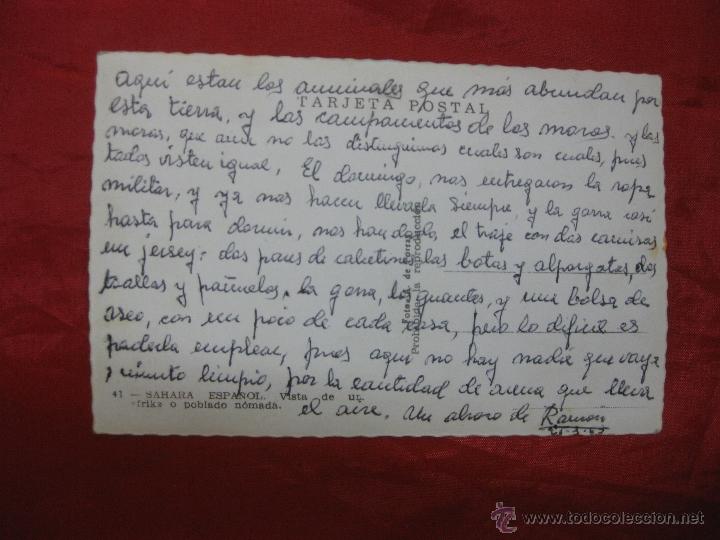 Aquí estan los animales que más abundan por
TARJETA POSTAL
esta tierra, y los campamentos de los moros. y las
moras, que aun no los distinguimos cuales son cuales, pues
todos visten igual, El domingo, nos entregaron la ropa
militar, y ya nos hacen llevarla siempre, y la gorra casi
hasta para dormir, nos han dado, el traje con dos camisas
un jersey; dos pares de calcetines, las botas y alpargatas, dos
toallas y pañuelos, la gorra, los guantes, y una bolsa de
aseo, con un poco de cada cosa, pero lo dificil es
poderla emplear, pues aqui no hay nadie que vaya
limpio, por la cantidad de arena que lleva
el aire. Un abrazo de Ramón
Prohibida la reproducción
41 — SAHARA ESPAÑOL. Vista de un
«frik» o poblado nómada.
todocoleccion
www.todocoleccion.net